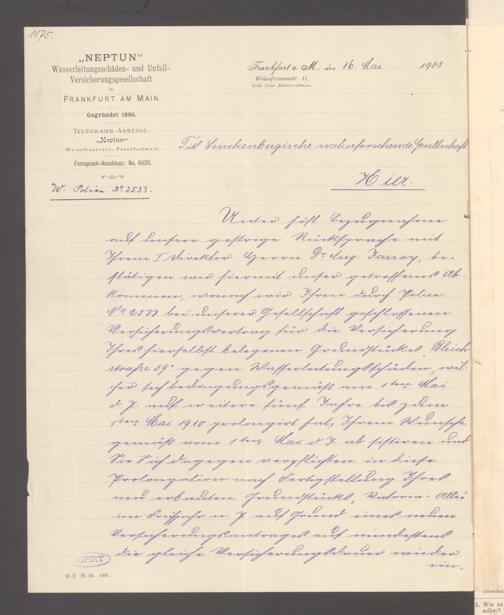 1075.
„NEPTUN“
Wasserleitungsschäden- und Unfall-
Versicherungsgesellschaft
in
FRANKFURT AM MAIN.
Gegründet 1886.
TELEGRAMM-ADRESSE
„Neptun“
Weissfrauenstr., Frankfurtmain.
Fernsprech-Anschluss: No. 6029.
W. Police No 2533.
Frankfurt a. M., den 16. Mai 1905
Weissfrauenstr. 11,
Ecke Neue Mainzerstrasse.
Tit. Senckenbergische naturforschende Gesellschaft
Hier.
Unter höfl. bezugnahme
auf unsere gestrige Rücksprache mit
Ihrem I. Direktor Herrn Dr. Aug. Jassoy, be-
stätigen wir hiermit unser getroffenes Ab-
kommen, wonach wir Ihren durch Police
No 2533 bei unserer Gesellschaft geschlossenen
Versicherungsvertrag für die Versicherung
Ihres hierselbst belegenen Grundstückes, Bleich-
straße 59 gegen Wasserleitungsschäden, wel-
cher sich bedingungsgemäß am 1ten Mai
d. J. auf weitere fünf Jahre bis zum
1ten Mai 1910 prolongirt hat, Ihrem Wunsche
gemäß vom 1ten Mai d. J. ab sistiren und
Sie Sich dagegen verpflichten in diese
Prolongation nach Fertigstellung Ihres
neu erbauten Grundstücks, Victoria-Allee
im Frühjahr n. J. auf Grund eines neuen
Versicherungsantrages auf mindestens
die gleiche Versicherungsdauer wieder
ein-
COPIRT